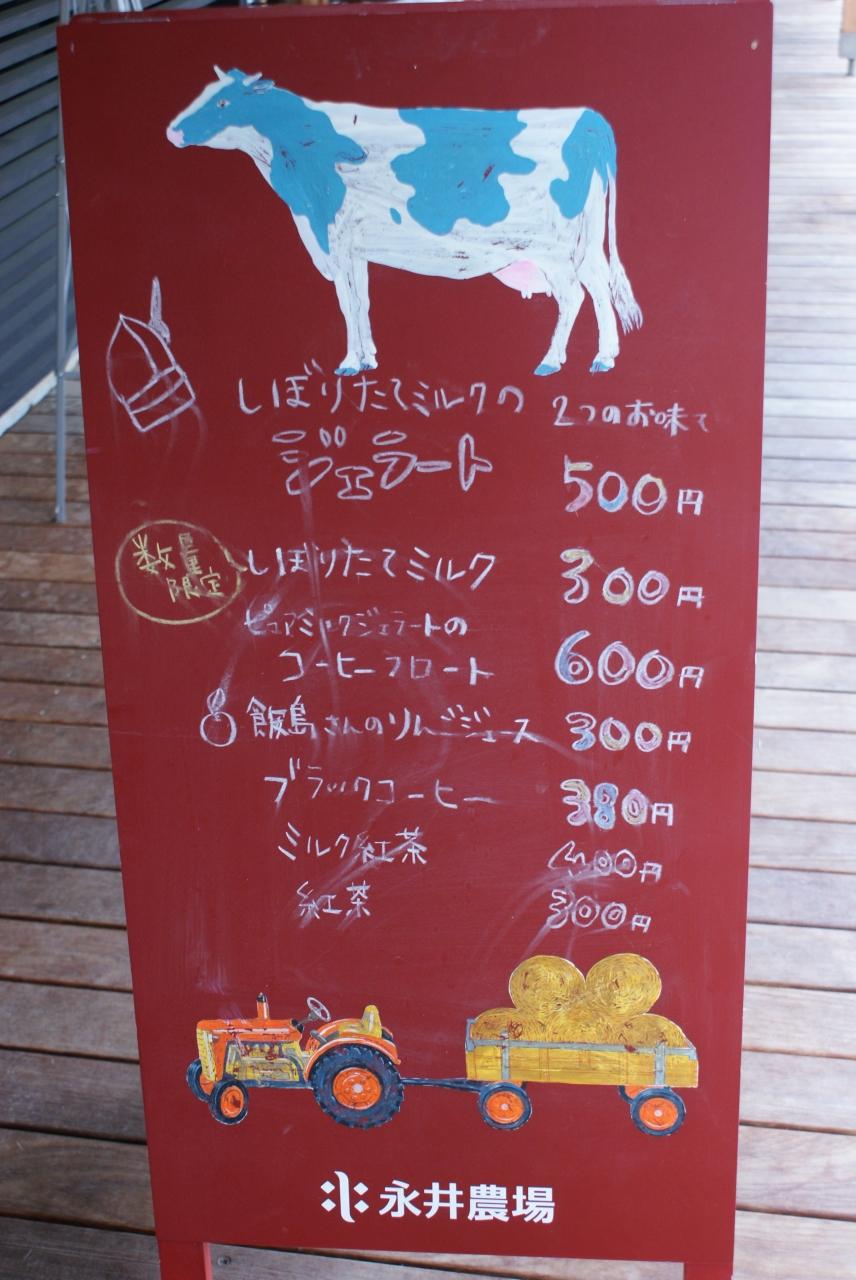 しぼりたてミルクの 2つのお味で
ジェラート 500円
数量
限定
しぼりたてミルク 300円
ピュアミルクジェラートの
コーヒーフロート 600円
飯島さんのりんごジュース 300円
ブラックコーヒー 380円
ミルク紅茶 400円
紅茶 300円
永井農場